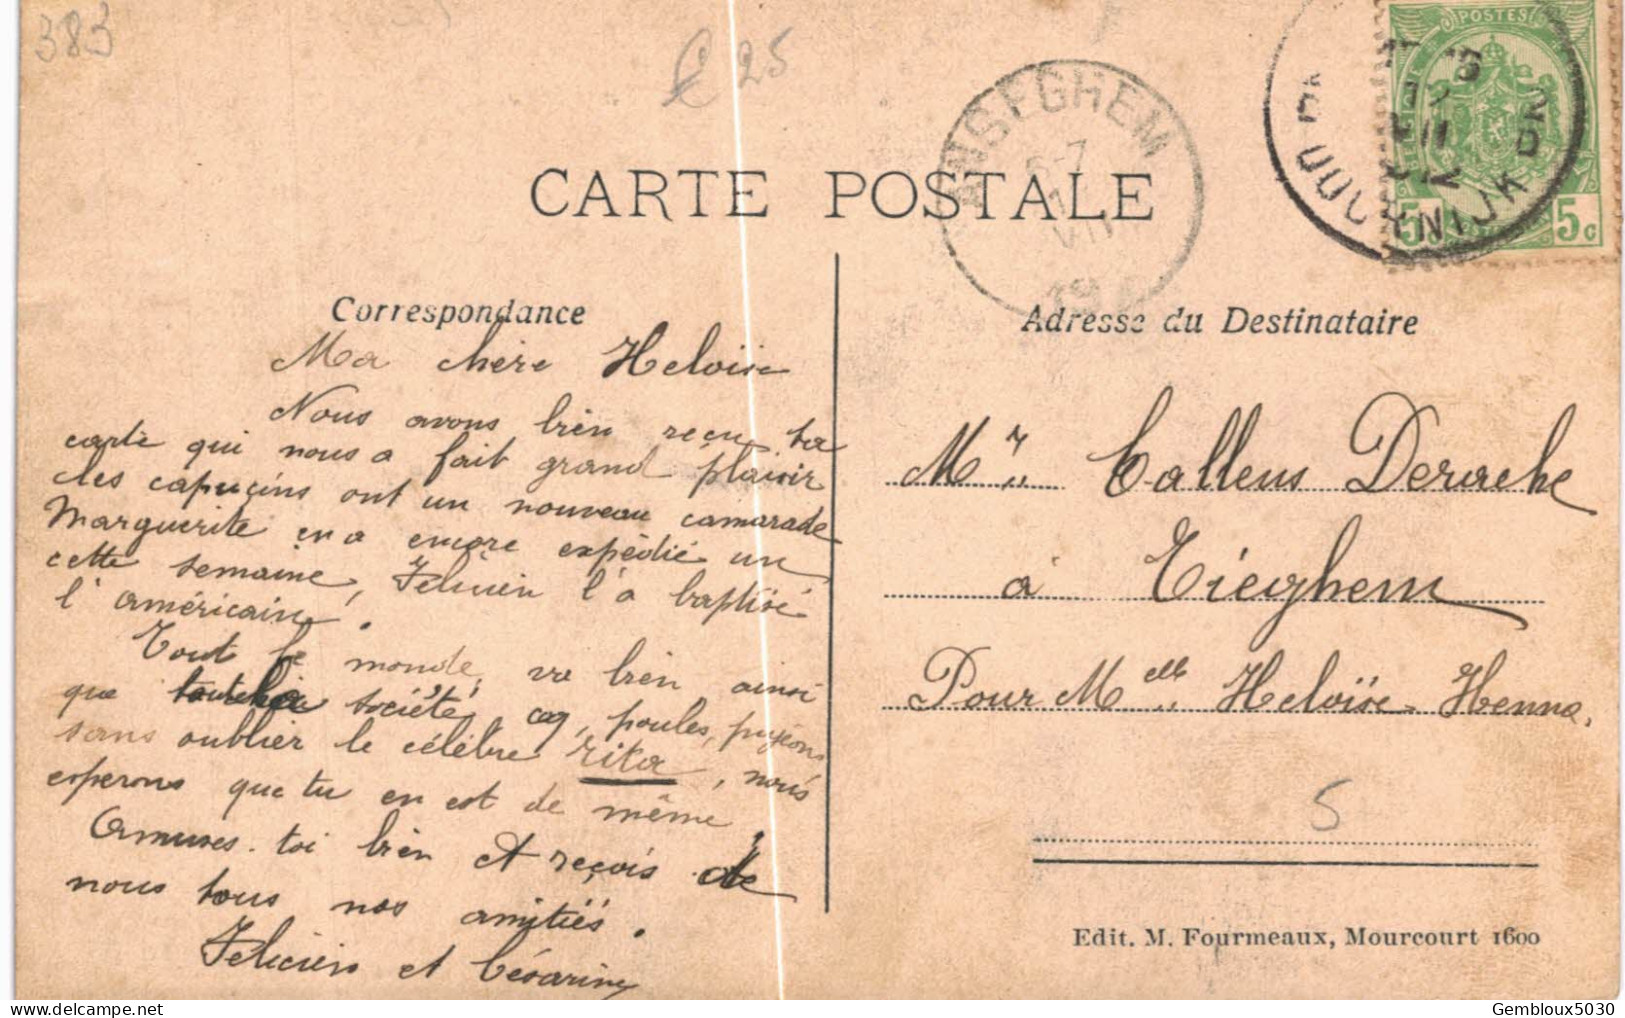 383
25
POSTES
5c
5c
ANSEGHEM
5-7
VII
DOORNIJK
2 D
CARTE POSTALE
Correspondance
Ma chère Heloïse
Nous avons bien reçu ta
carte qui nous a fait grand plaisir
les capuçins ont un nouveau camarade
Marguerite en a encore expédié un
cette semaine, Felicien l'a baptisé
l'américain.
Tout le monde, va bien ainsi
que toute la société coq, poules, pigeons
sans oublier le célèbre Rita, nous
esperons que tu en est de même
Amuses-toi bien et reçois de
nous tous nos amitiés.
Felicien et Césarine
Adresse du Destinataire
Mr Callens Derache
à Tieghem
Pour Melle Heloïse Henno.
5
Edit. M. Fourmeaux, Mourcourt 1600
Gembloux5030